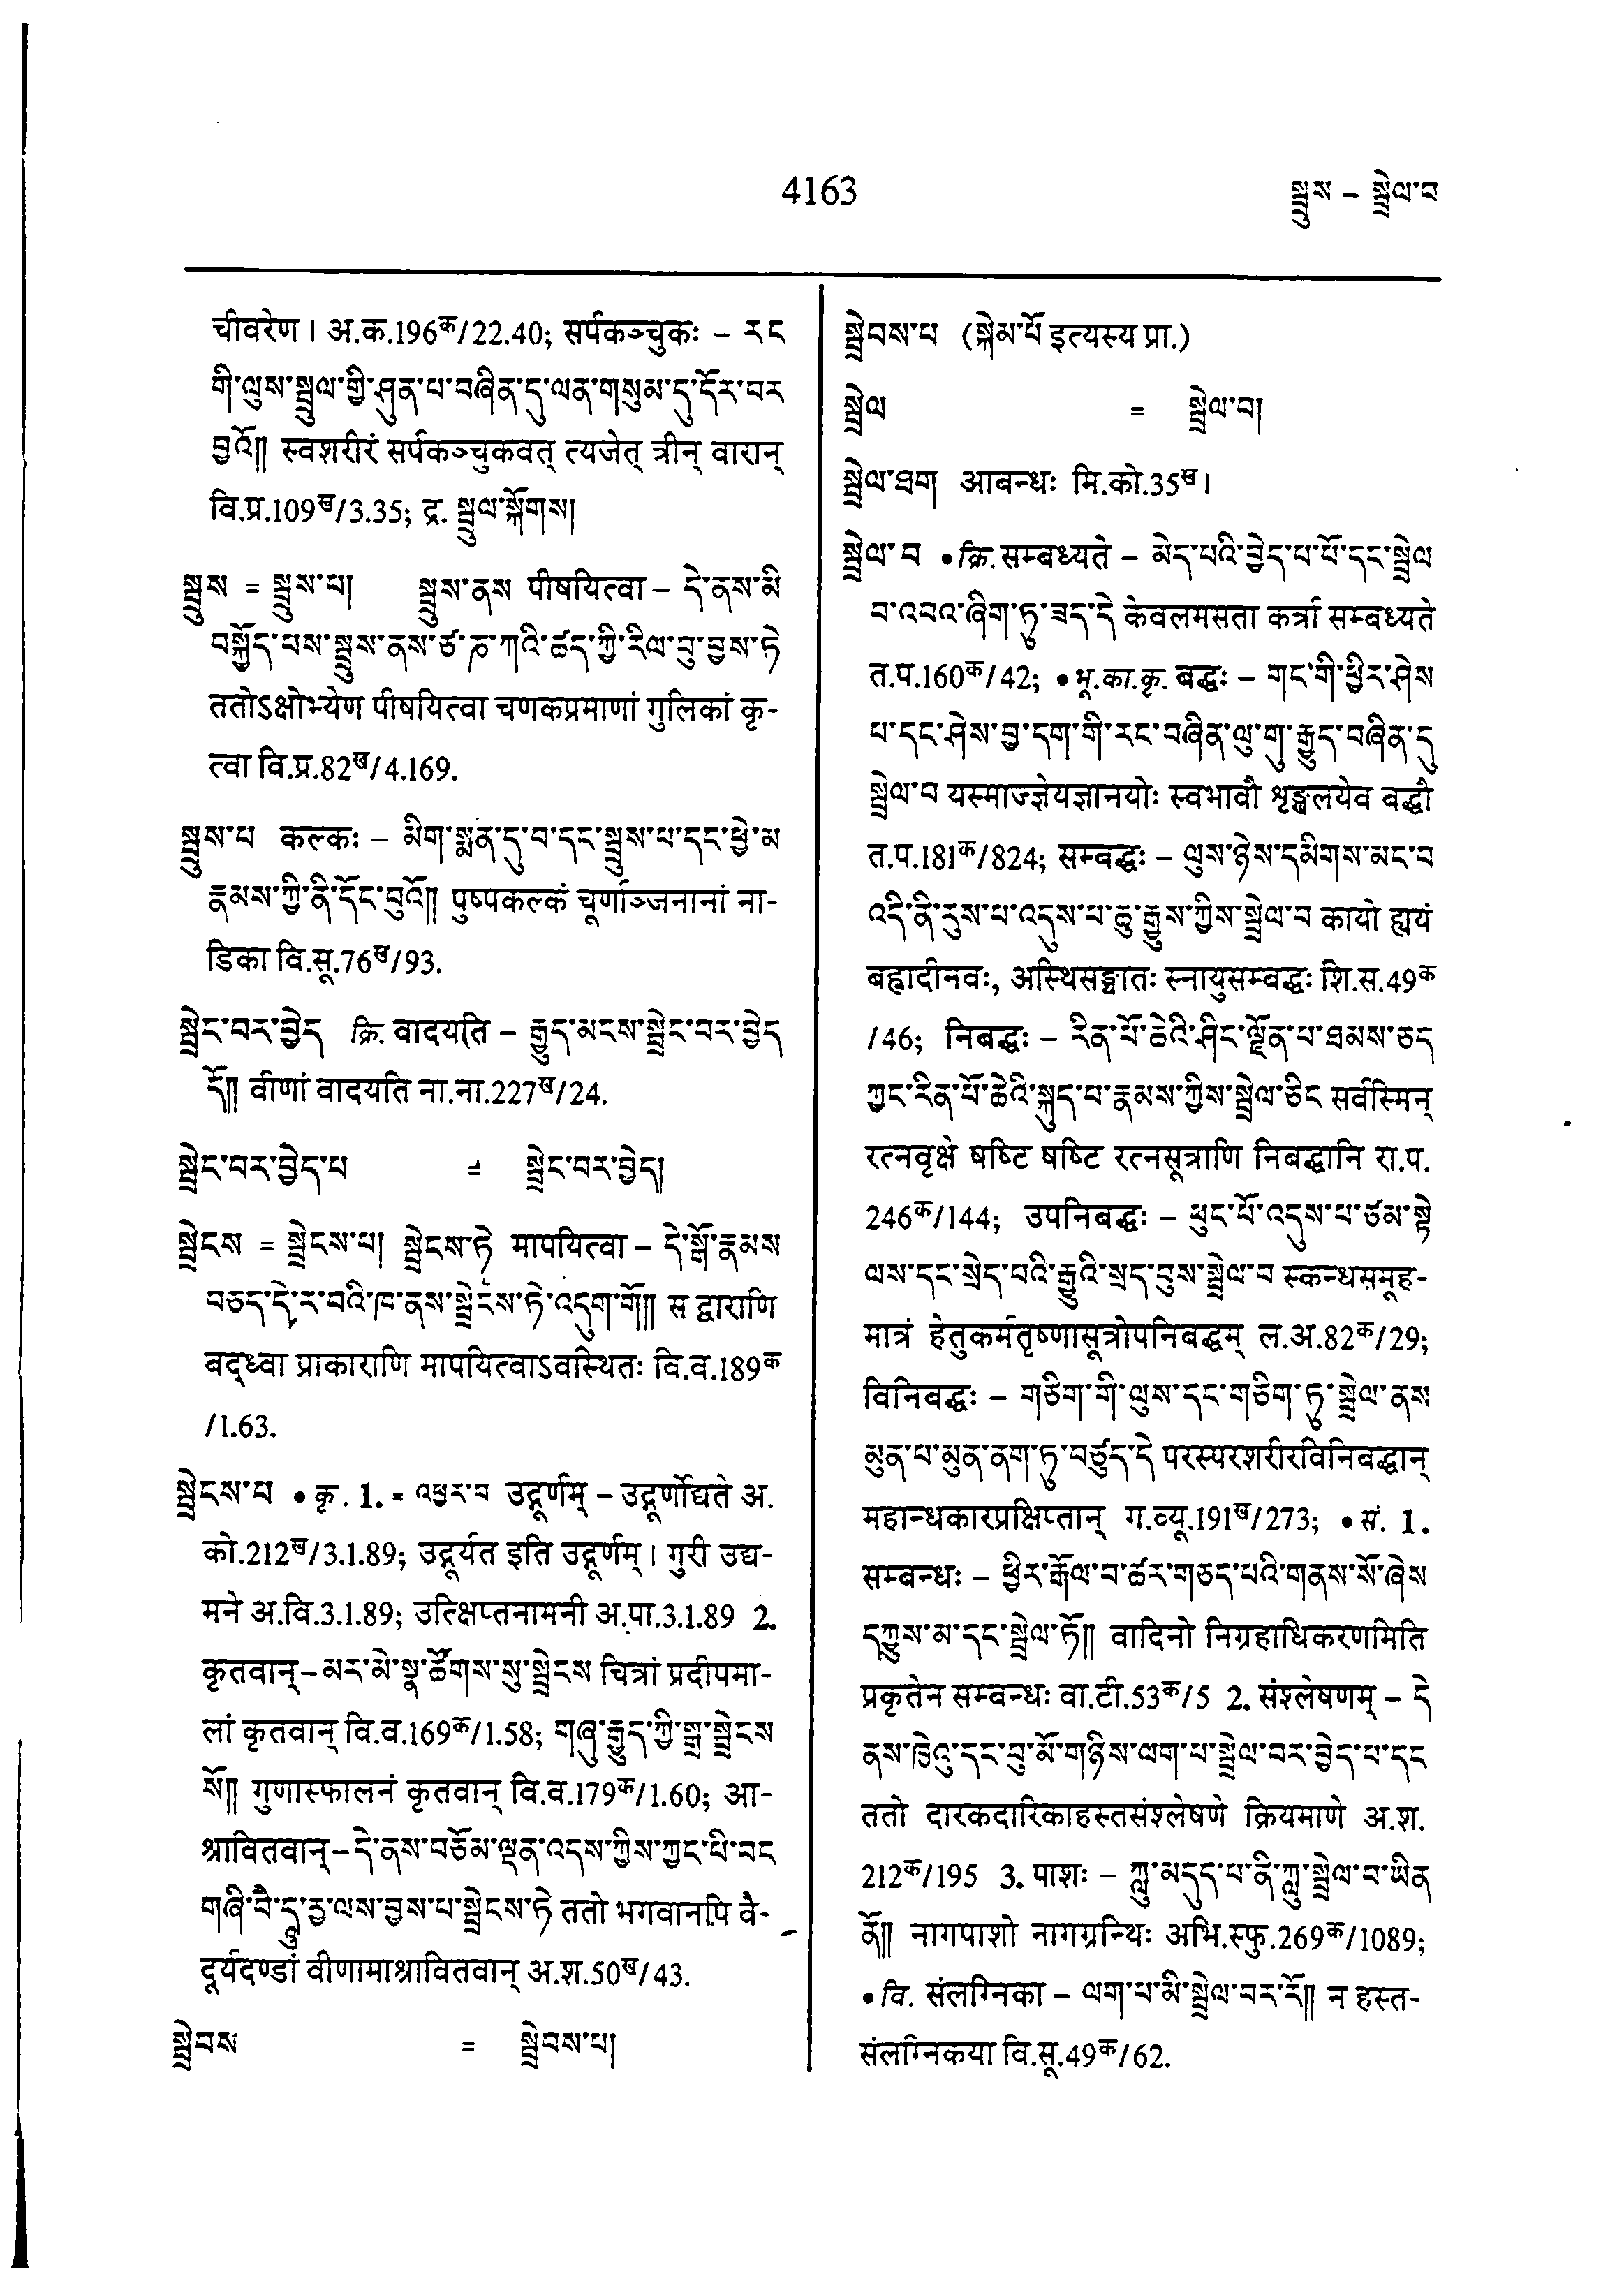 4163
སྦྲུས – སྦྲེལ་བ
चीवरेण । अ.क.196क/22.40; सर्पकञ्चुकः – རང
གི་ལུས་སྦྲུལ་གྱི་ཤུན་པ་བཞིན་དུ་ལན་གསུམ་དུ་དོར་བར
བྱའོ༎ स्वशरीरं सर्पकञ्चुकवत् त्यजेत् त्रीन् वारान्
वि.प्र.109ख/3.35; द्र. སྦྲུལ་སྐོགས།
སྦྲུས = སྦྲུས་པ། སྦྲུས་ནས पीषयित्वा – དེ་ནས་མི
བསྐྱོད་པས་སྦྲུས་ནས་ཙ་ཎ་ཀའི་ཚད་ཀྱི་རིལ་བུ་བྱས་ཏེ
ततोऽक्षोभ्येण पीषयित्वा चणकप्रमाणां गुलिकां कृ-
त्वा वि.प्र.82ख/4.169.
སྦྲུས་པ कल्कः – མིག་སྨན་དུ་བ་དང་སྦྲུས་པ་དང་ཕྱེ་མ
རྣམས་ཀྱི་ནི་དོང་བུའོ༎ पुष्पकल्कं चूर्णाञ्जनानां ना-
डिका वि.सू.76ख/93.
སྦྲེང་བར་བྱེད क्रि. वादयति – རྒྱུད་མངས་སྦྲེང་བར་བྱེད
དོ༎ वीणां वादयति ना.ना.227ख/24.
སྦྲེང་བར་བྱེད་པ = སྦྲེང་བར་བྱེད།
སྦྲེངས = སྦྲེངས་པ། སྦྲེངས་ཏེ मापयित्वा – དེ་སྒོ་རྣམས
བཅད་དེ་ར་བའི་ཁ་ནས་སྦྲེངས་ཏེ་འདུག་གོ༎ स द्वाराणि
बद्ध्वा प्राकाराणि मापयित्वाऽवस्थितः वि.व.189क
/1.63.
སྦྲེངས་པ • कृ. 1. = འཕྱར་བ उद्गूर्णम् – उद्गूर्णोद्यते अ.
को.212ख/3.1.89; उद्गूर्यत इति उद्गूर्णम् । गुरी उद्य-
मने अ.वि.3.1.89; उत्क्षिप्तनामनी अ.पा.3.1.89 2.
कृतवान् – མར་མེ་སྣ་ཚོགས་སུ་སྦྲེངས चित्रां प्रदीपमा-
लां कृतवान् वि.व.169क/1.58; གཞུ་རྒྱུད་ཀྱི་སྒྲ་སྦྲེངས
སོ༎ गुणास्फालनं कृतवान् वि.व.179क/1.60; आ-
श्रावितवान् – དེ་ནས་བཅོམ་ལྡན་འདས་ཀྱིས་ཀྱང་པི་བང
གཞི་བཻ་དཱུརྱ་ལས་བྱས་པ་སྦྲེངས་ཏེ ततो भगवानपि वै-
दूर्यदण्डां वीणामाश्रावितवान् अ.श.50ख/43.
སྦྲེབས = སྦྲེབས་པ།
སྦྲེབས་པ (སྐེམ་པོ इत्यस्य प्रा.)
སྦྲེལ = སྦྲེལ་བ།
སྦྲེལ་ཐག आबन्धः मि.को.35ख ।
སྦྲེལ་བ • क्रि. सम्बध्यते – མེད་པའི་བྱེད་པ་པོ་དང་སྦྲེལ
བ་འབའ་ཞིག་ཏུ་ཟད་དེ केवलमसता कर्त्रा सम्बध्यते
त.प.160क/42; • भू.का.कृ. बद्धः – གང་གི་ཕྱིར་ཤེས
པ་དང་ཤེས་བྱ་དག་གི་རང་བཞིན་ལུ་གུ་རྒྱུད་བཞིན་དུ
སྦྲེལ་བ यस्माज्ज्ञेयज्ञानयोः स्वभावौ शृङ्खलयेव बद्धौ
त.प.181क/824; सम्बद्धः – ལུས་ཉེས་དམིགས་མང་བ
འདི་ནི་རུས་པ་འདུས་པ་ཆུ་རྒྱུས་ཀྱིས་སྦྲེལ་བ कायो ह्ययं
बह्वादीनवः, अस्थिसङ्घातः स्नायुसम्बद्धः शि.स.49क
/46; निबद्धः – རིན་པོ་ཆེའི་ཤིང་ལྗོན་པ་ཐམས་ཅད
ཀྱང་རིན་པོ་ཆེའི་སྐུད་པ་རྣམས་ཀྱིས་སྦྲེལ་ཅིང सर्वस्मिन्
रत्नवृक्षे षष्टि षष्टि रत्नसूत्राणि निबद्धानि रा.प.
246क/144; उपनिबद्धः – ཕུང་པོ་འདུས་པ་ཙམ་སྟེ
ལས་དང་སྲེད་པའི་རྒྱུའི་སྲད་བུས་སྦྲེལ་བ स्कन्धसमूह-
मात्रं हेतुकर्मतृष्णासूत्रोपनिबद्धम् ल.अ.82क/29;
विनिबद्धः – གཅིག་གི་ལུས་དང་གཅིག་ཏུ་སྦྲེལ་ནས
མུན་པ་མུན་ནག་ཏུ་བཙུད་དེ परस्परशरीरविनिबद्धान्
महान्धकारप्रक्षिप्तान् ग.व्यू.191ख/273; • सं. 1.
सम्बन्धः – ཕྱིར་རྒོལ་བ་ཚར་གཅད་པའི་གནས་སོ་ཞེས
དཀྱུས་མ་དང་སྦྲེལ་ཏོ༎ वादिनो निग्रहाधिकरणमिति
प्रकृतेन सम्बन्धः वा.टी.53क/5 2. संश्लेषणम् – དེ
ནས་ཁྱེའུ་དང་བུ་མོ་གཉིས་ལག་པ་སྦྲེལ་བར་བྱེད་པ་དང
ततो दारकदारिकाहस्तसंश्लेषणे क्रियमाणे अ.श.
212क/195 3. पाशः – ཀླུ་མདུད་པ་ནི་ཀླུ་སྦྲེལ་བ་ཡིན
ནོ༎ नागपाशो नागग्रन्थिः अभि.स्फु.269क/1089;
• वि. संलग्निका – ལག་པ་མི་སྦྲེལ་བར་རོ༎ न हस्त-
संलग्निकया वि.सू.49क/62.